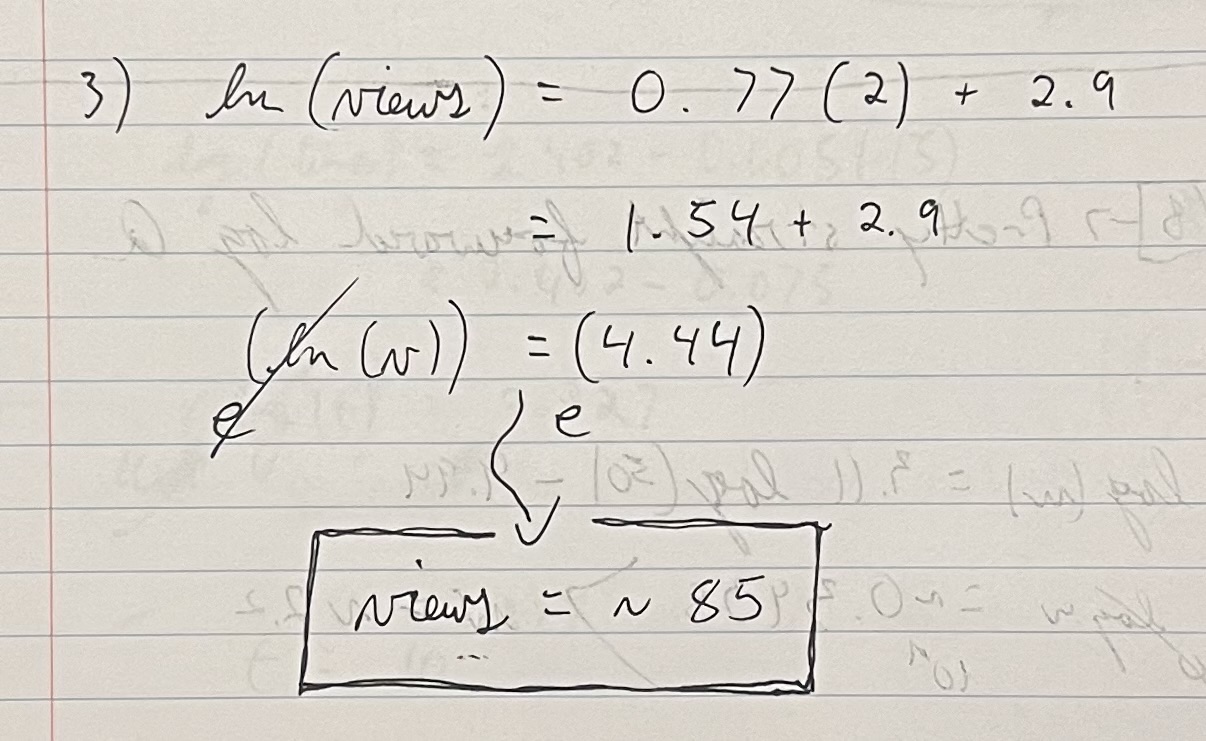 3) ln (views) = 0.77 (2) + 2.9
= 1.54 + 2.9
(ln (v)) = (4.44)
e e
views = ~ 85
...